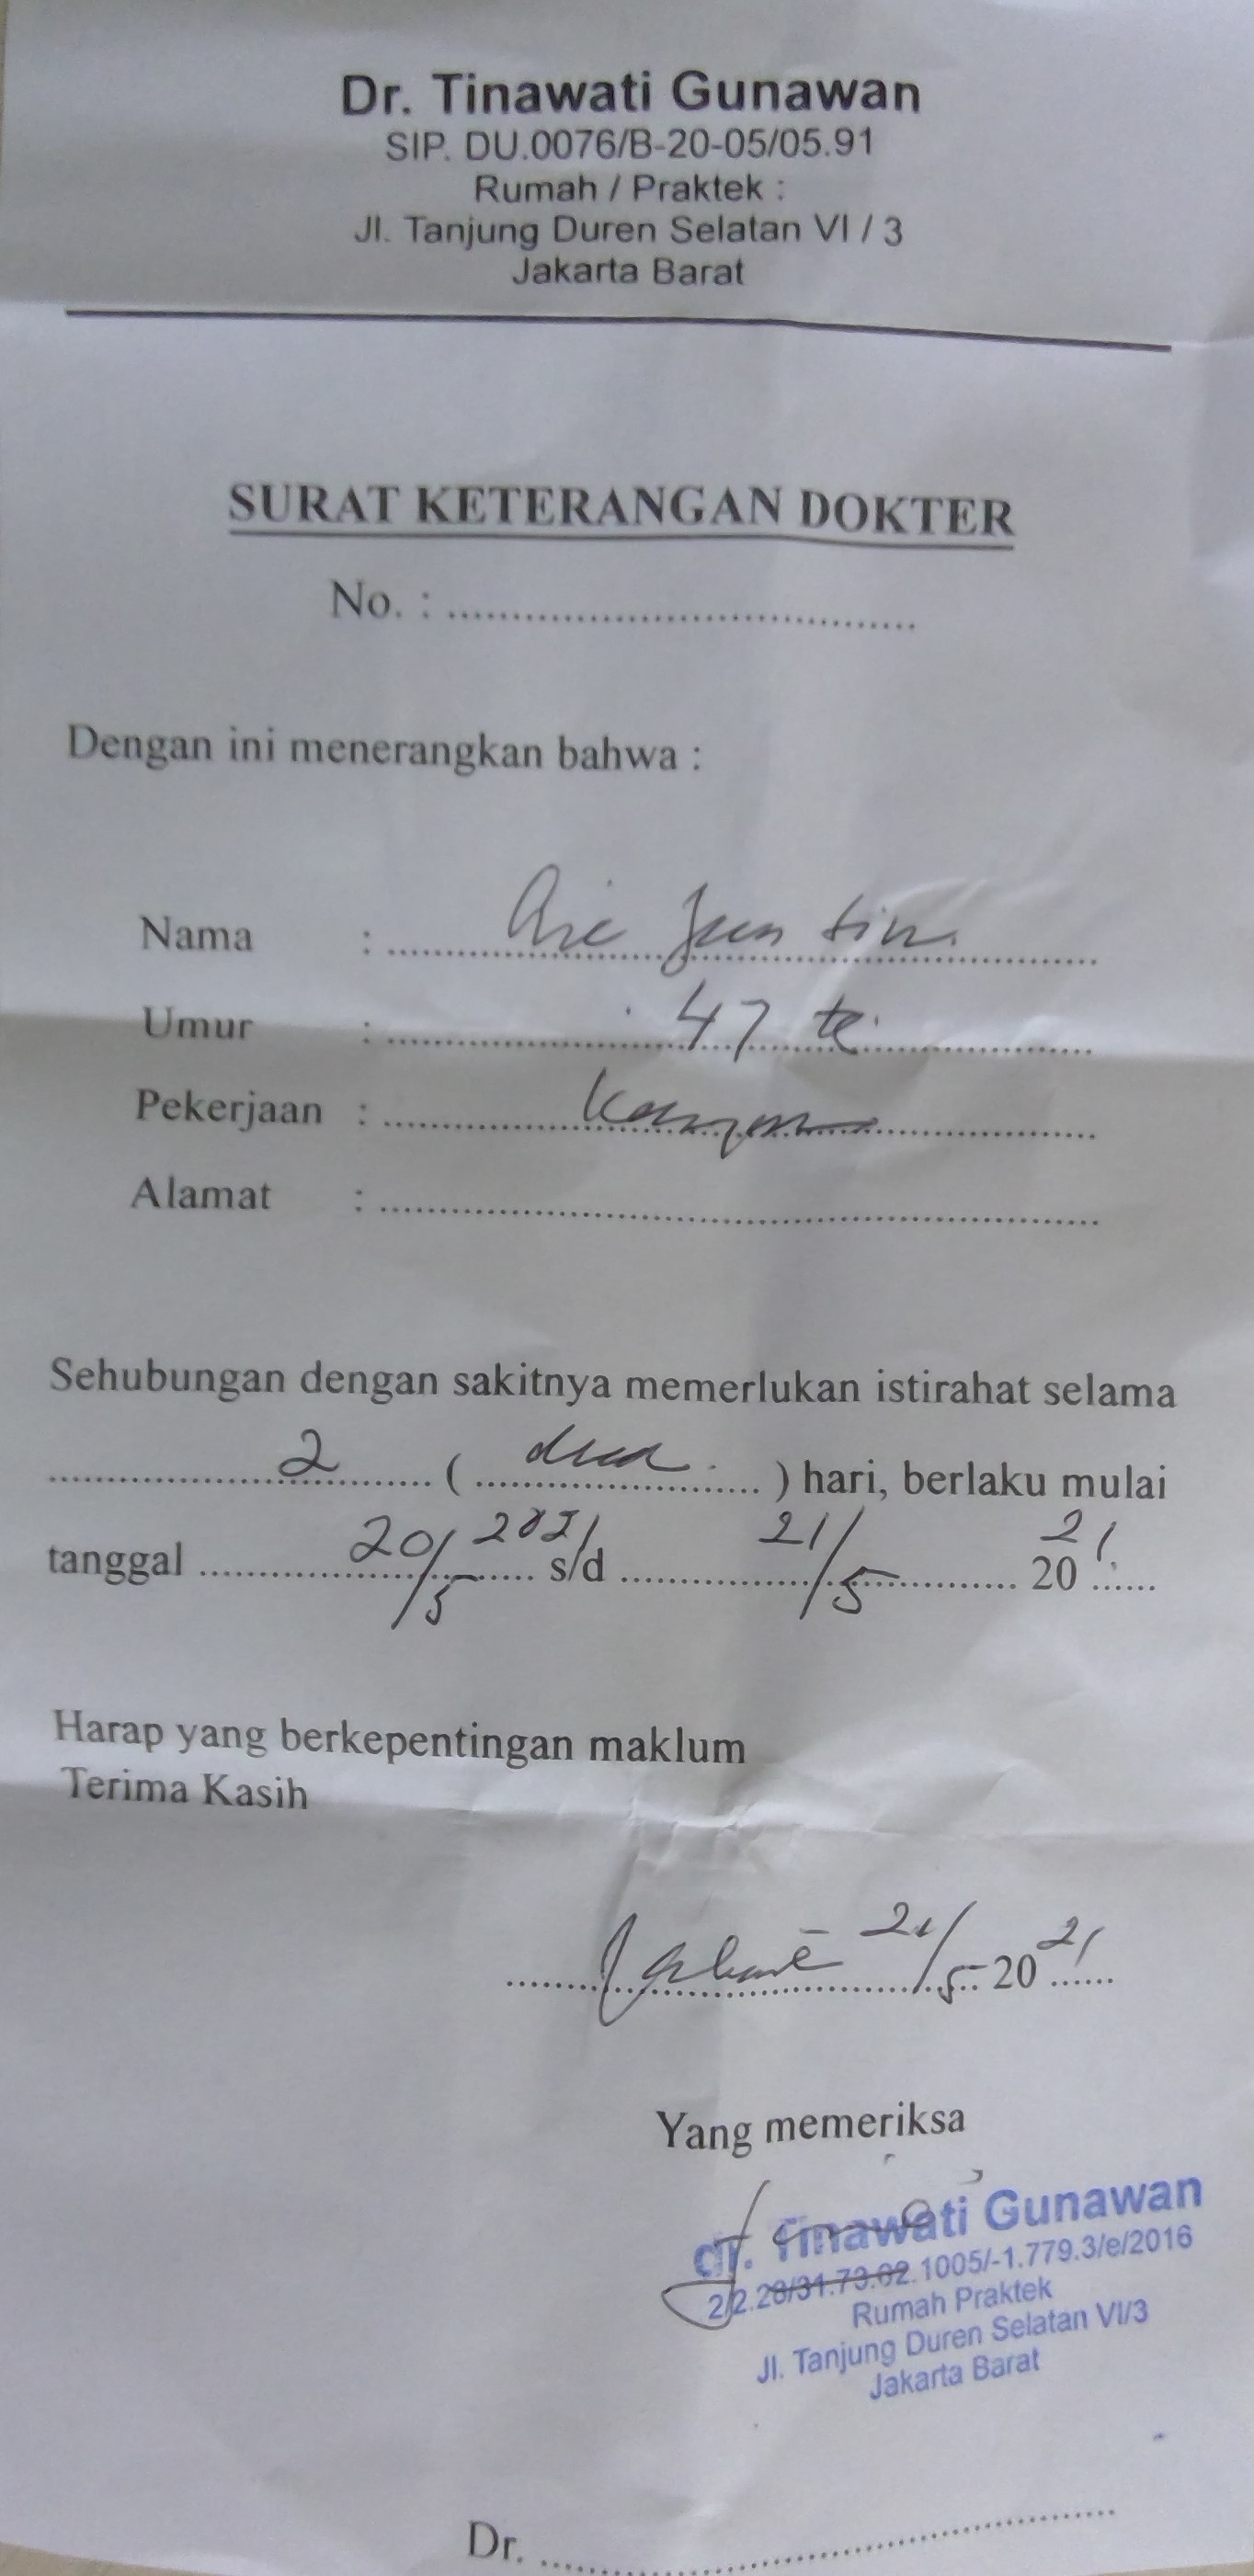 Dr. Tinawati Gunawan
SIP. DU.0076/B-20-05/05.91
Rumah / Praktek :
Jl. Tanjung Duren Selatan VI / 3
Jakarta Barat
SURAT KETERANGAN DOKTER
No. : ........................................
Dengan ini menerangkan bahwa :
Nama : 
Umur : 47
Pekerjaan : 
Alamat : ........................................
Sehubungan dengan sakitnya memerlukan istirahat selama
2 ( dua ) hari, berlaku mulai
tanggal 20/5 2021 s/d 21/5 2021
Harap yang berkepentingan maklum
Terima Kasih
5 2021
Yang memeriksa
dr. Tinawati Gunawan
1005/-1.779.3/e/2016
Rumah Praktek
Jl. Tanjung Duren Selatan VI/3
Jakarta Barat
Dr. ........................................